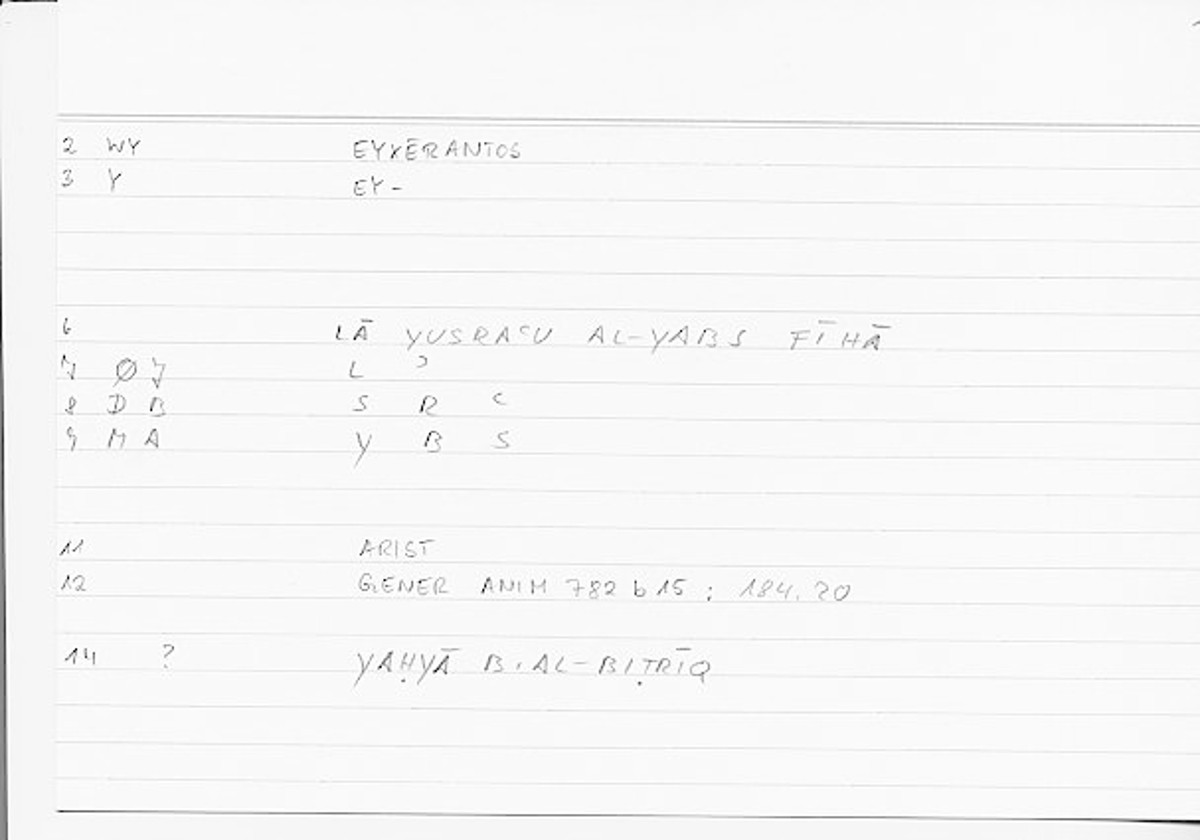 2 WY EYXĒRANTOS
3 Y EY-
6 LĀ YUSRAʿU AL-YABS FĪHĀ
7 Ø 7 L ʾ
8 D B S R ʿ
9 M A Y B S
11 ARIST
12 GENER ANIM 782 b 15 ; 184.20
14 ? YAḤYĀ B. AL-BIṬRĪQ